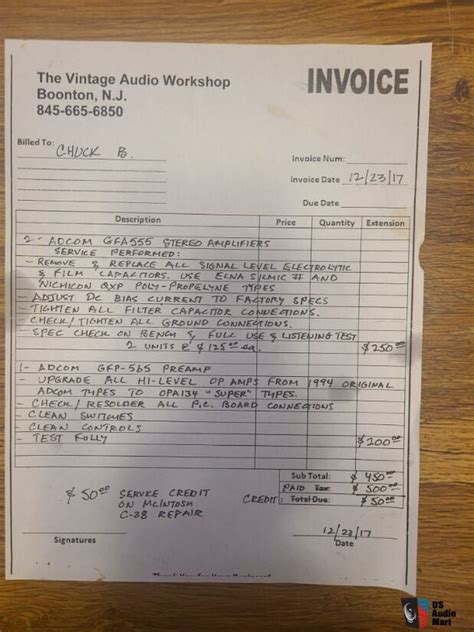 The Vintage Audio Workshop
Boonton, N.J.
845-665-6850
INVOICE
Billed To:
CHUCK B.
Invoice Num:
Invoice Date 12/23/17
Due Date
Description Price Quantity Extension
2 - ADCOM GFA555 STEREO AMPLIFIERS
SERVICE PERFORMED:
- REMOVE & REPLACE ALL SIGNAL LEVEL ELECTROLYTIC
& FILM CAPACITORS. USE ELNA SILMIC II AND
NICHICON QXP POLY-PROPELYNE TYPES
- ADJUST DC BIAS CURRENT TO FACTORY SPECS
- TIGHTEN ALL FILTER CAPACITOR CONNECTIONS.
- CHECK/TIGHTEN ALL GROUND CONNECTIONS.
- SPEC CHECK ON BENCH & FULL USE & LISTENING TEST
2 UNITS @ $125.00 ea. $250.00
1- ADCOM GFP-565 PREAMP
- UPGRADE ALL HI-LEVEL OP AMPS FROM 1994 ORIGINAL
ADCOM TYPES TO OPA134 "SUPER" TYPES.
- CHECK/RESOLDER ALL P.C. BOARD CONNECTIONS
- CLEAN SWITCHES
- CLEAN CONTROLS
- TEST FULLY $200.00
Sub Total: $450.00
PAID Tax: $500.00
CREDIT: Total Due: $50.00
$50.00 SERVICE CREDIT
ON McINTOSH
C-38 REPAIR
12/23/17
Signatures
Date
US
Audio
Mart